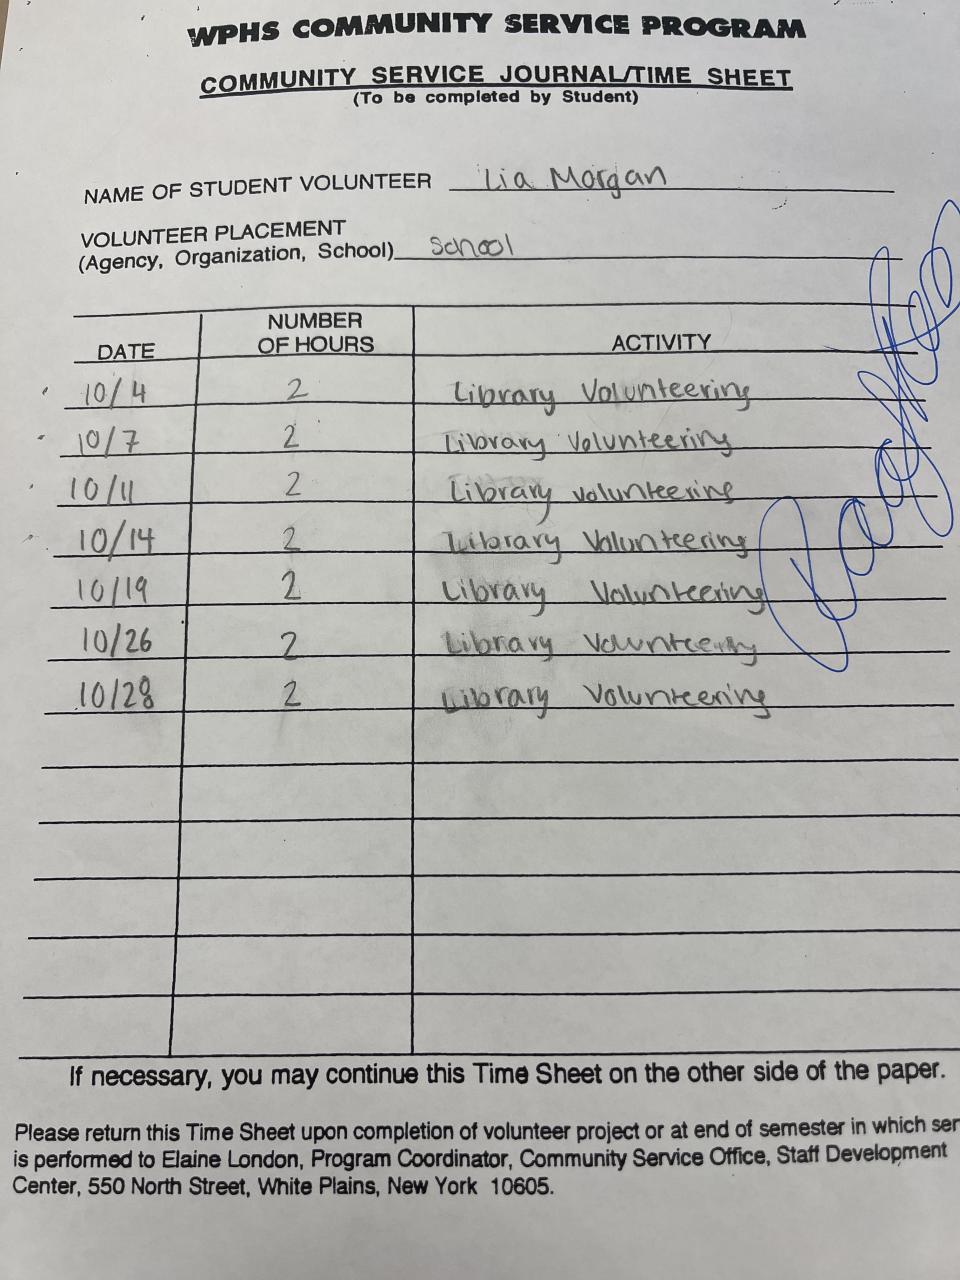 WPHS COMMUNITY SERVICE PROGRAM
COMMUNITY SERVICE JOURNAL/TIME SHEET
(To be completed by Student)
NAME OF STUDENT VOLUNTEER Lia Morgan
VOLUNTEER PLACEMENT
(Agency, Organization, School) School
DATE NUMBER OF HOURS ACTIVITY
10/4 2 Library Volunteering
10/7 2 Library Volunteering
10/11 2 Library volunteering
10/14 2 Library Volunteering
10/19 2 Library Volunteering
10/26 2 Library Volunteering
10/28 2 Library Volunteering
If necessary, you may continue this Time Sheet on the other side of the paper.
Please return this Time Sheet upon completion of volunteer project or at end of semester in which ser
is performed to Elaine London, Program Coordinator, Community Service Office, Staff Development
Center, 550 North Street, White Plains, New York 10605.